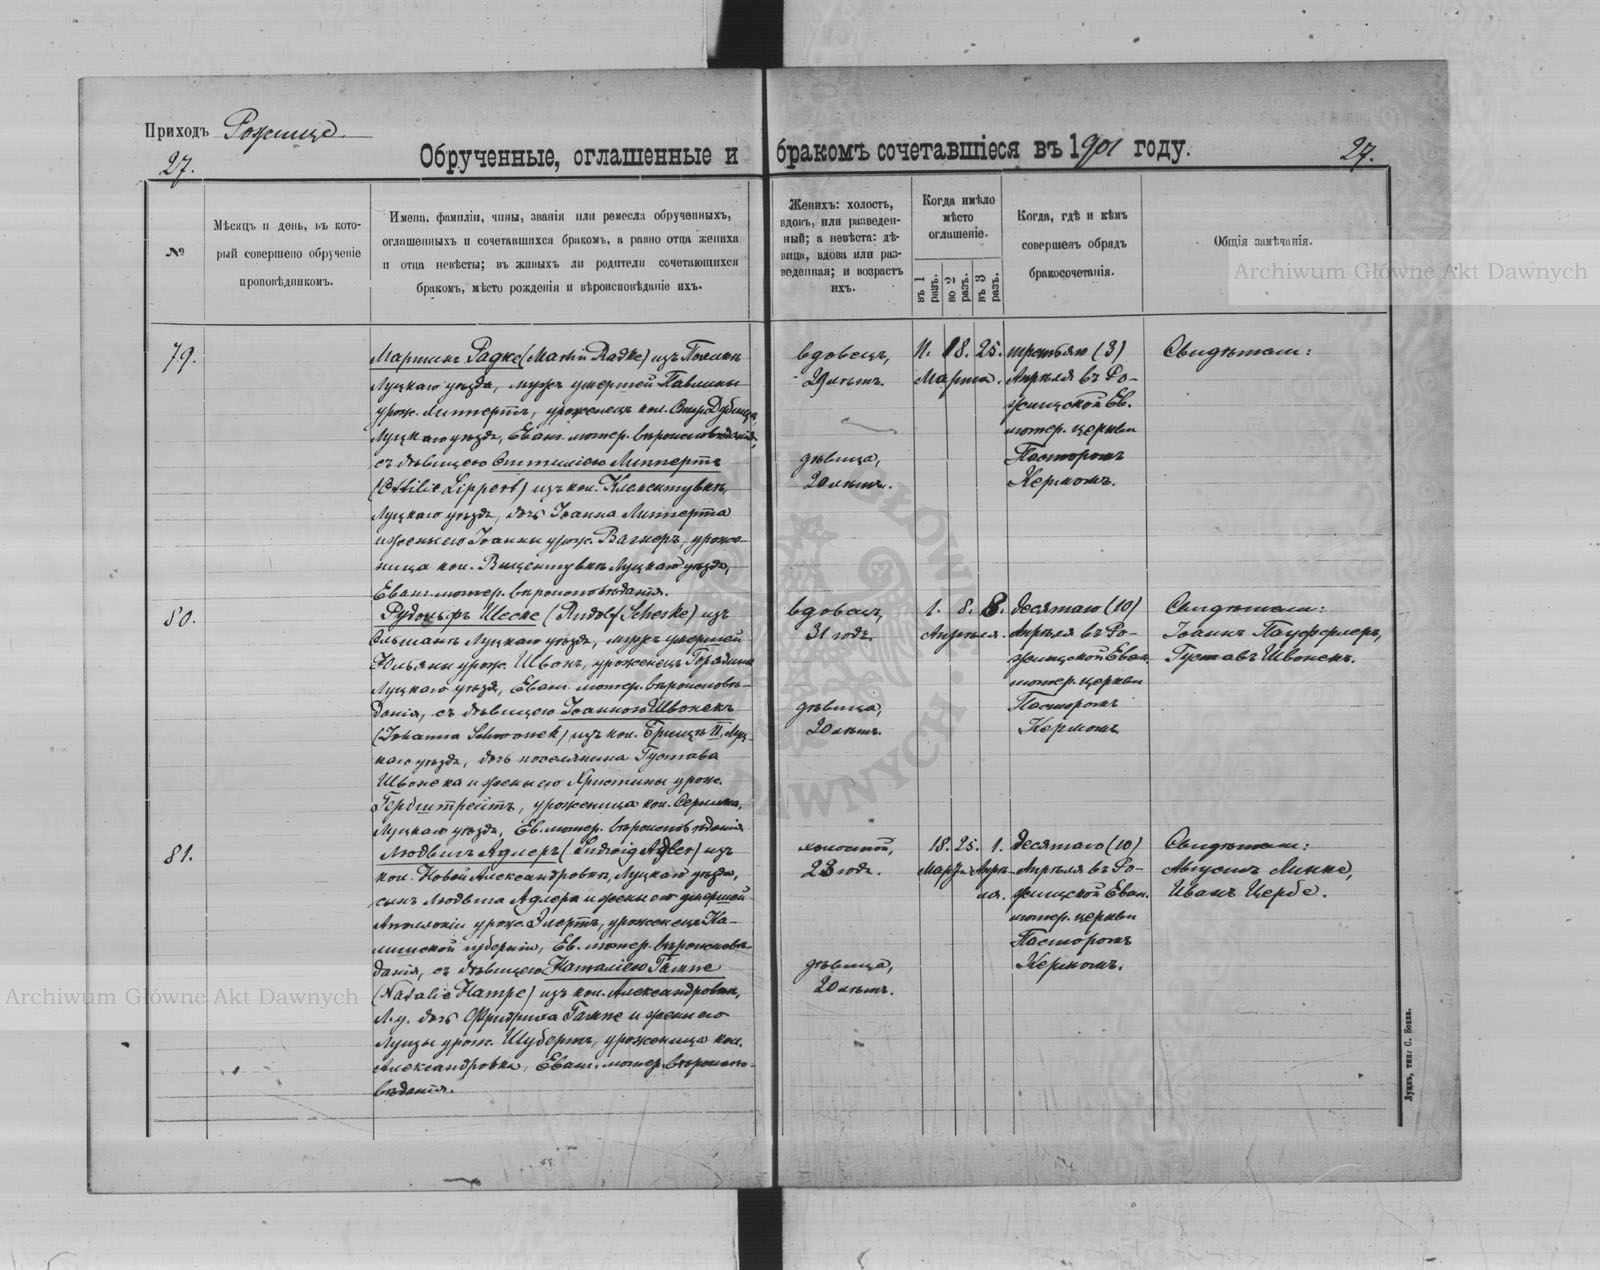 Приходъ Рожище
27.
Обрученные, оглашенные и бракомъ сочетавшіеся въ 1901 году.
27.
№
Мѣсяцъ и день, въ который совершено обрученіе проповѣдникомъ.
Имена, фамиліи, чины, званія или ремесла обрученныхъ,
оглашенныхъ и сочетавшихся бракомъ, а равно отца жениха
и отца невѣсты; въ живыхъ ли родители сочетающихся
бракомъ, мѣсто рожденія и вѣроисповѣданіе ихъ.
Женихъ: холостъ,
вдовъ, или разведен-
ный; а невѣста: дѣ-
вица, вдова или раз-
веденная; и возрастъ
ихъ.
Когда имѣло
мѣсто
оглашеніе.
въ 1 разъ.
во 2 разъ.
въ 3 разъ.
Когда, гдѣ и кѣмъ
совершенъ обрядъ
бракосочетанія.
Общія замѣчанія.
Archiwum Główne Akt Dawnych
79.
Мартинъ Радке (Martin Radke) изъ
Луцкаго уѣзда, мужъ умершей Павлины
урож. Липпертъ, уроженецъ кол.
Луцкаго уѣзда, Еванг. лютер. вѣроисповѣданія,
съ дѣвицею Оттиліею Липпертъ
(Ottilie Lippert) изъ кол. Клементувкѣ,
Луцкаго уѣзда, дочь Іоанна Липперта
и жены его Іоанны урож. Вагнеръ, уроже-
ница кол. Вицентувкѣ Луцкаго уѣзда,
Еванг. лютер. вѣроисповѣданія.
вдовецъ,
29 лѣтъ.
дѣвица,
20 лѣтъ.
11. 18. 25.
Марта.
третьяго (3)
Апрѣля въ Ро-
жищской Ев.
лютер. церкви
Пасторомъ
Кермомъ.
Свидѣтели:
80.
Рудольфъ Шеске (Rudolf Scheske) изъ
Луцкаго уѣзда, мужъ умершей
Юльяны урож. Швонъ, уроженецъ
Луцкаго уѣзда, Еванг. лютер. вѣроисповѣ-
данія, съ дѣвицею Іоанною Швонекъ
(Johanna Schwonek) изъ кол. II, Луц-
каго уѣзда, дочь поселянина Густава
Швонека и жены его Христины урож.
уроженица кол.
Луцкаго уѣзда, Ев. лютер. вѣроисповѣданія
вдовецъ,
31 годъ.
дѣвица,
20 лѣтъ.
1. 8. 8.
Апрѣля.
десятаго (10)
Апрѣля въ Ро-
жищской Еван.
лютер. церкви
Пасторомъ
Кермомъ.
Свидѣтели:
Іоаннъ
Густавъ Швонекъ.
81.
Людвигъ Адлеръ (Ludwig Adler) изъ
кол. Новой Александровкѣ, Луцкаго уѣзда,
сынъ Людвига Адлера и жены его умершей
урож. Элертъ, уроженецъ Ка-
лишской губерніи, Ев. лютер. вѣроисповѣ-
данія, съ дѣвицею Наталіею Гампе
(Natalie Hampe) изъ кол. Александровкѣ,
Л. у. дочь Фридриха Гампе и жены его
Луизы урож. Шубертъ, уроженица кол.
Александровка, Еванг. лютер. вѣроиспо-
вѣданія.
холостой,
23 годъ.
дѣвица,
20 лѣтъ.
18. 25. 1.
Марта Апрѣ-
ля.
десятаго (10)
Апрѣля въ Ро-
жищской Еван.
лютер. церкви
Пасторомъ
Кермомъ.
Свидѣтели:
Августъ Линке,
Иванъ Цербе.
Archiwum Główne Akt Dawnych
Луцкъ, тип. С. Бонка.